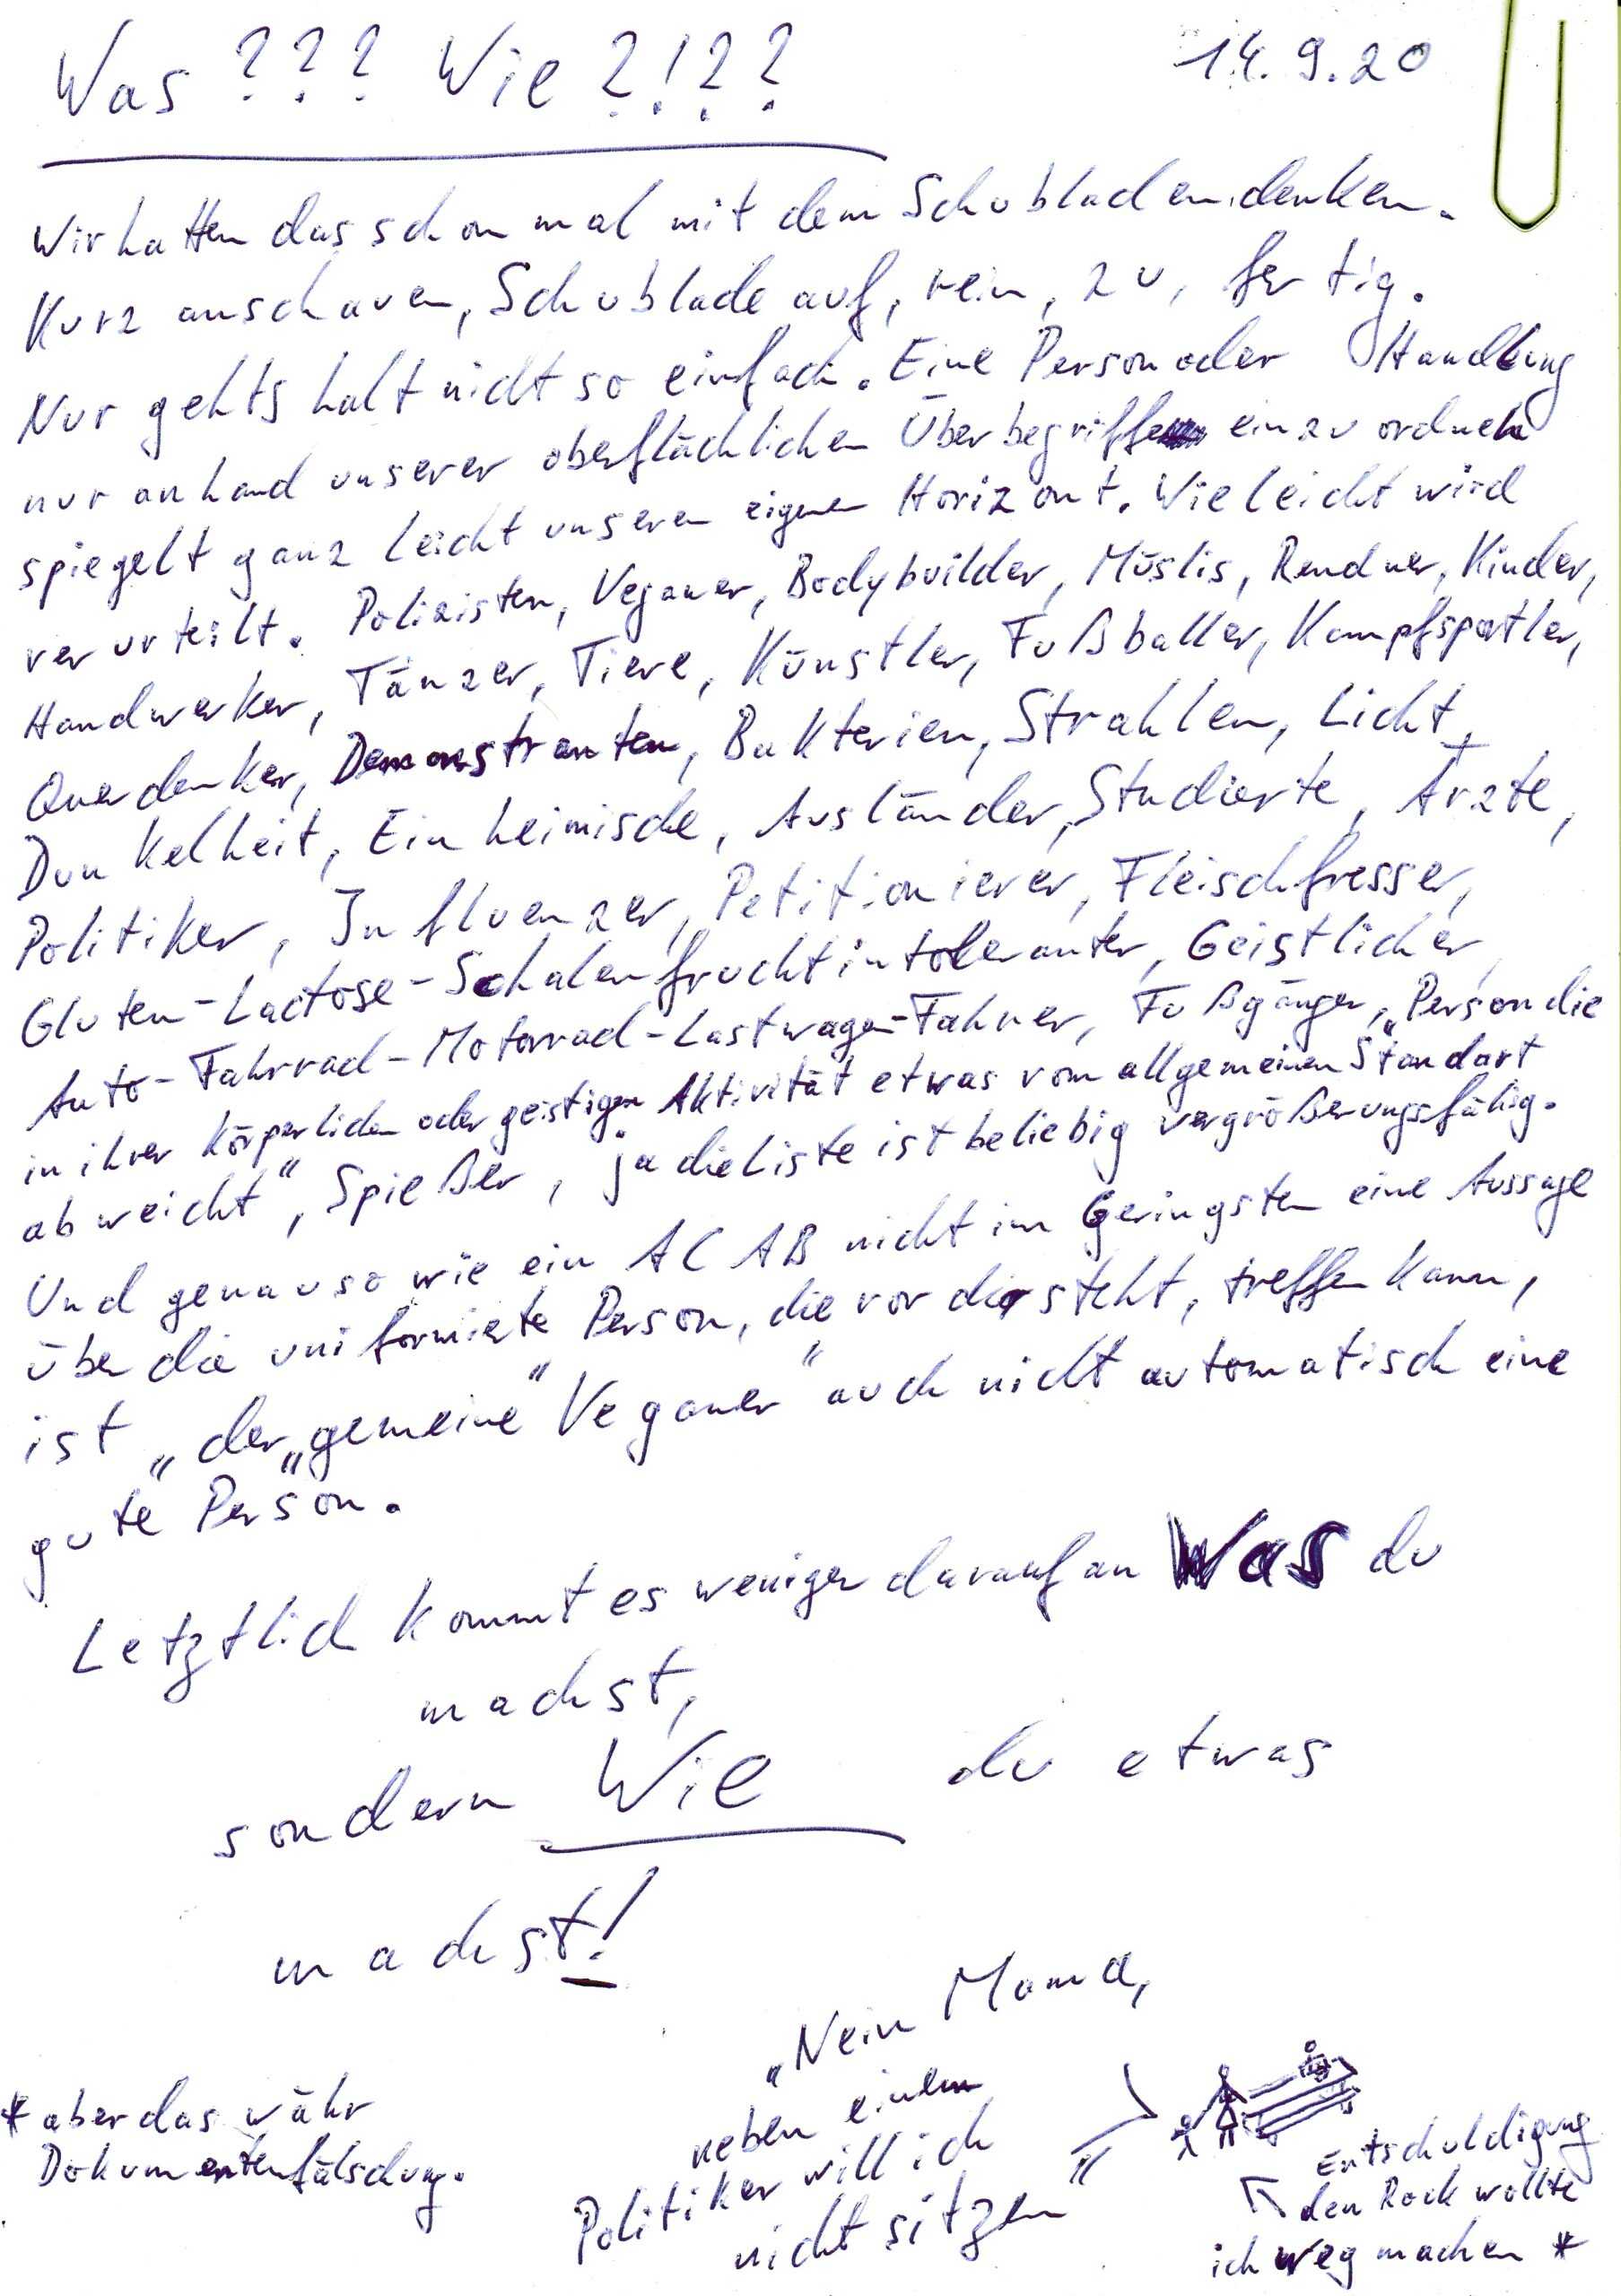 Was ??? Wie ?!??
14.9.20
Wir hatten das schon mal mit dem Schubladendenken.
Kurz anschauen, Schublade auf, rein, zu, fertig.
Nur gehts halt nicht so einfach. Eine Person oder Handlung
nur anhand unserer oberflächlichen Überbegriffe einzuordnen
spiegelt ganz leicht unseren eigenen Horizont. Vieleicht wird
verurteilt. Polizisten, Veganer, Bodybuilder, Müslis, Rendner, Kinder,
Handwerker, Tänzer, Tiere, Künstler, Fußballer, Kampfsportler,
Querdenker, Demonstranten, Bakterien, Strahlen, Licht,
Dunkelheit, Einheimische, Ausländer, Studierte, Ärzte,
Politiker, Influenzer, Petitionierer, Fleischfresser,
Gluten-Lactose-Schalenfruchtintoleranter, Geistlicher,
Auto-Fahrrad-Motorrad-Lastwagen-Fahrer, Fußgänger, „Person die
in ihrer körperlichen oder geistigen Aktivität etwas vom allgemeinen Standart
abweicht“, Spießer, ja die Liste ist beliebig vergrößerungsfähig.
Und genauso wie ein ACAB nicht im Geringsten eine Aussage
über die uniformierte Person, die vor dir steht, treffen kann,
ist „der „gemeine“ Veganer“ auch nicht automatisch eine
gute Person.
Letztlich kommt es weniger darauf an Was du
machst,
sondern Wie du etwas
machst!
„Nein Mama,
neben einem
Politiker will ich
nicht sitzen“
Entschuldigung
den Rock wollte
ich weg machen *
* aber das währ
Dokumentenfälschung.